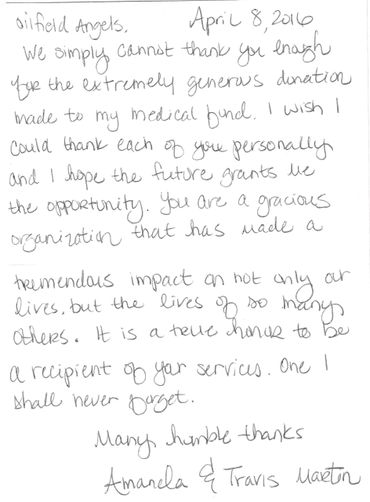 Oilfield Angels. April 8, 2016
We simply cannot thank you enough
for the extremely generous donation
made to my medical fund. I wish I
could thank each of you personally
and I hope the future grants me
the opportunity. You are a gracious
organization that has made a
tremendous impact on not only our
lives, but the lives of so many
others. It is a true honor to be
a recipient of your services. One I
shall never forget.
Many humble thanks
Amanda & Travis Martin